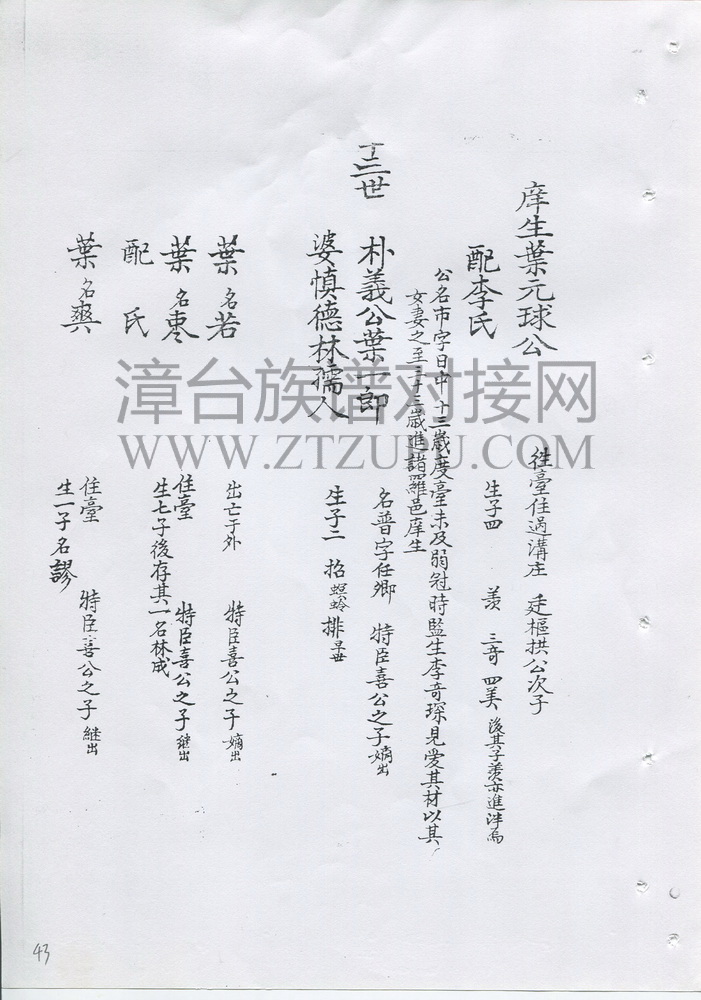 庠生葉元球公 徃臺住過溝庄 廷樞拱公次子
配李氏 生子四 羨 三奇 四美 後其子羨亦進泮焉
公名市字日中十三歲度臺未及弱冠時監生李奇琛見愛其材以其
女妻之至三十三歲進諸羅邑庠生
十三世
朴義公葉一郎 名普字任卿 特臣喜公之子嫡出
婆慎德林孺人 生子二 招螟蛉 排早世
葉名若 出亡于外 特臣喜公之子嫡出
葉名棗 住臺 特臣喜公之子継出
配 氏 生七子後存其一名林成
葉名爽 住臺 特臣喜公之子継出
生一子名謬
漳台族谱对接网
WWW.ZTZUPU.COM
43